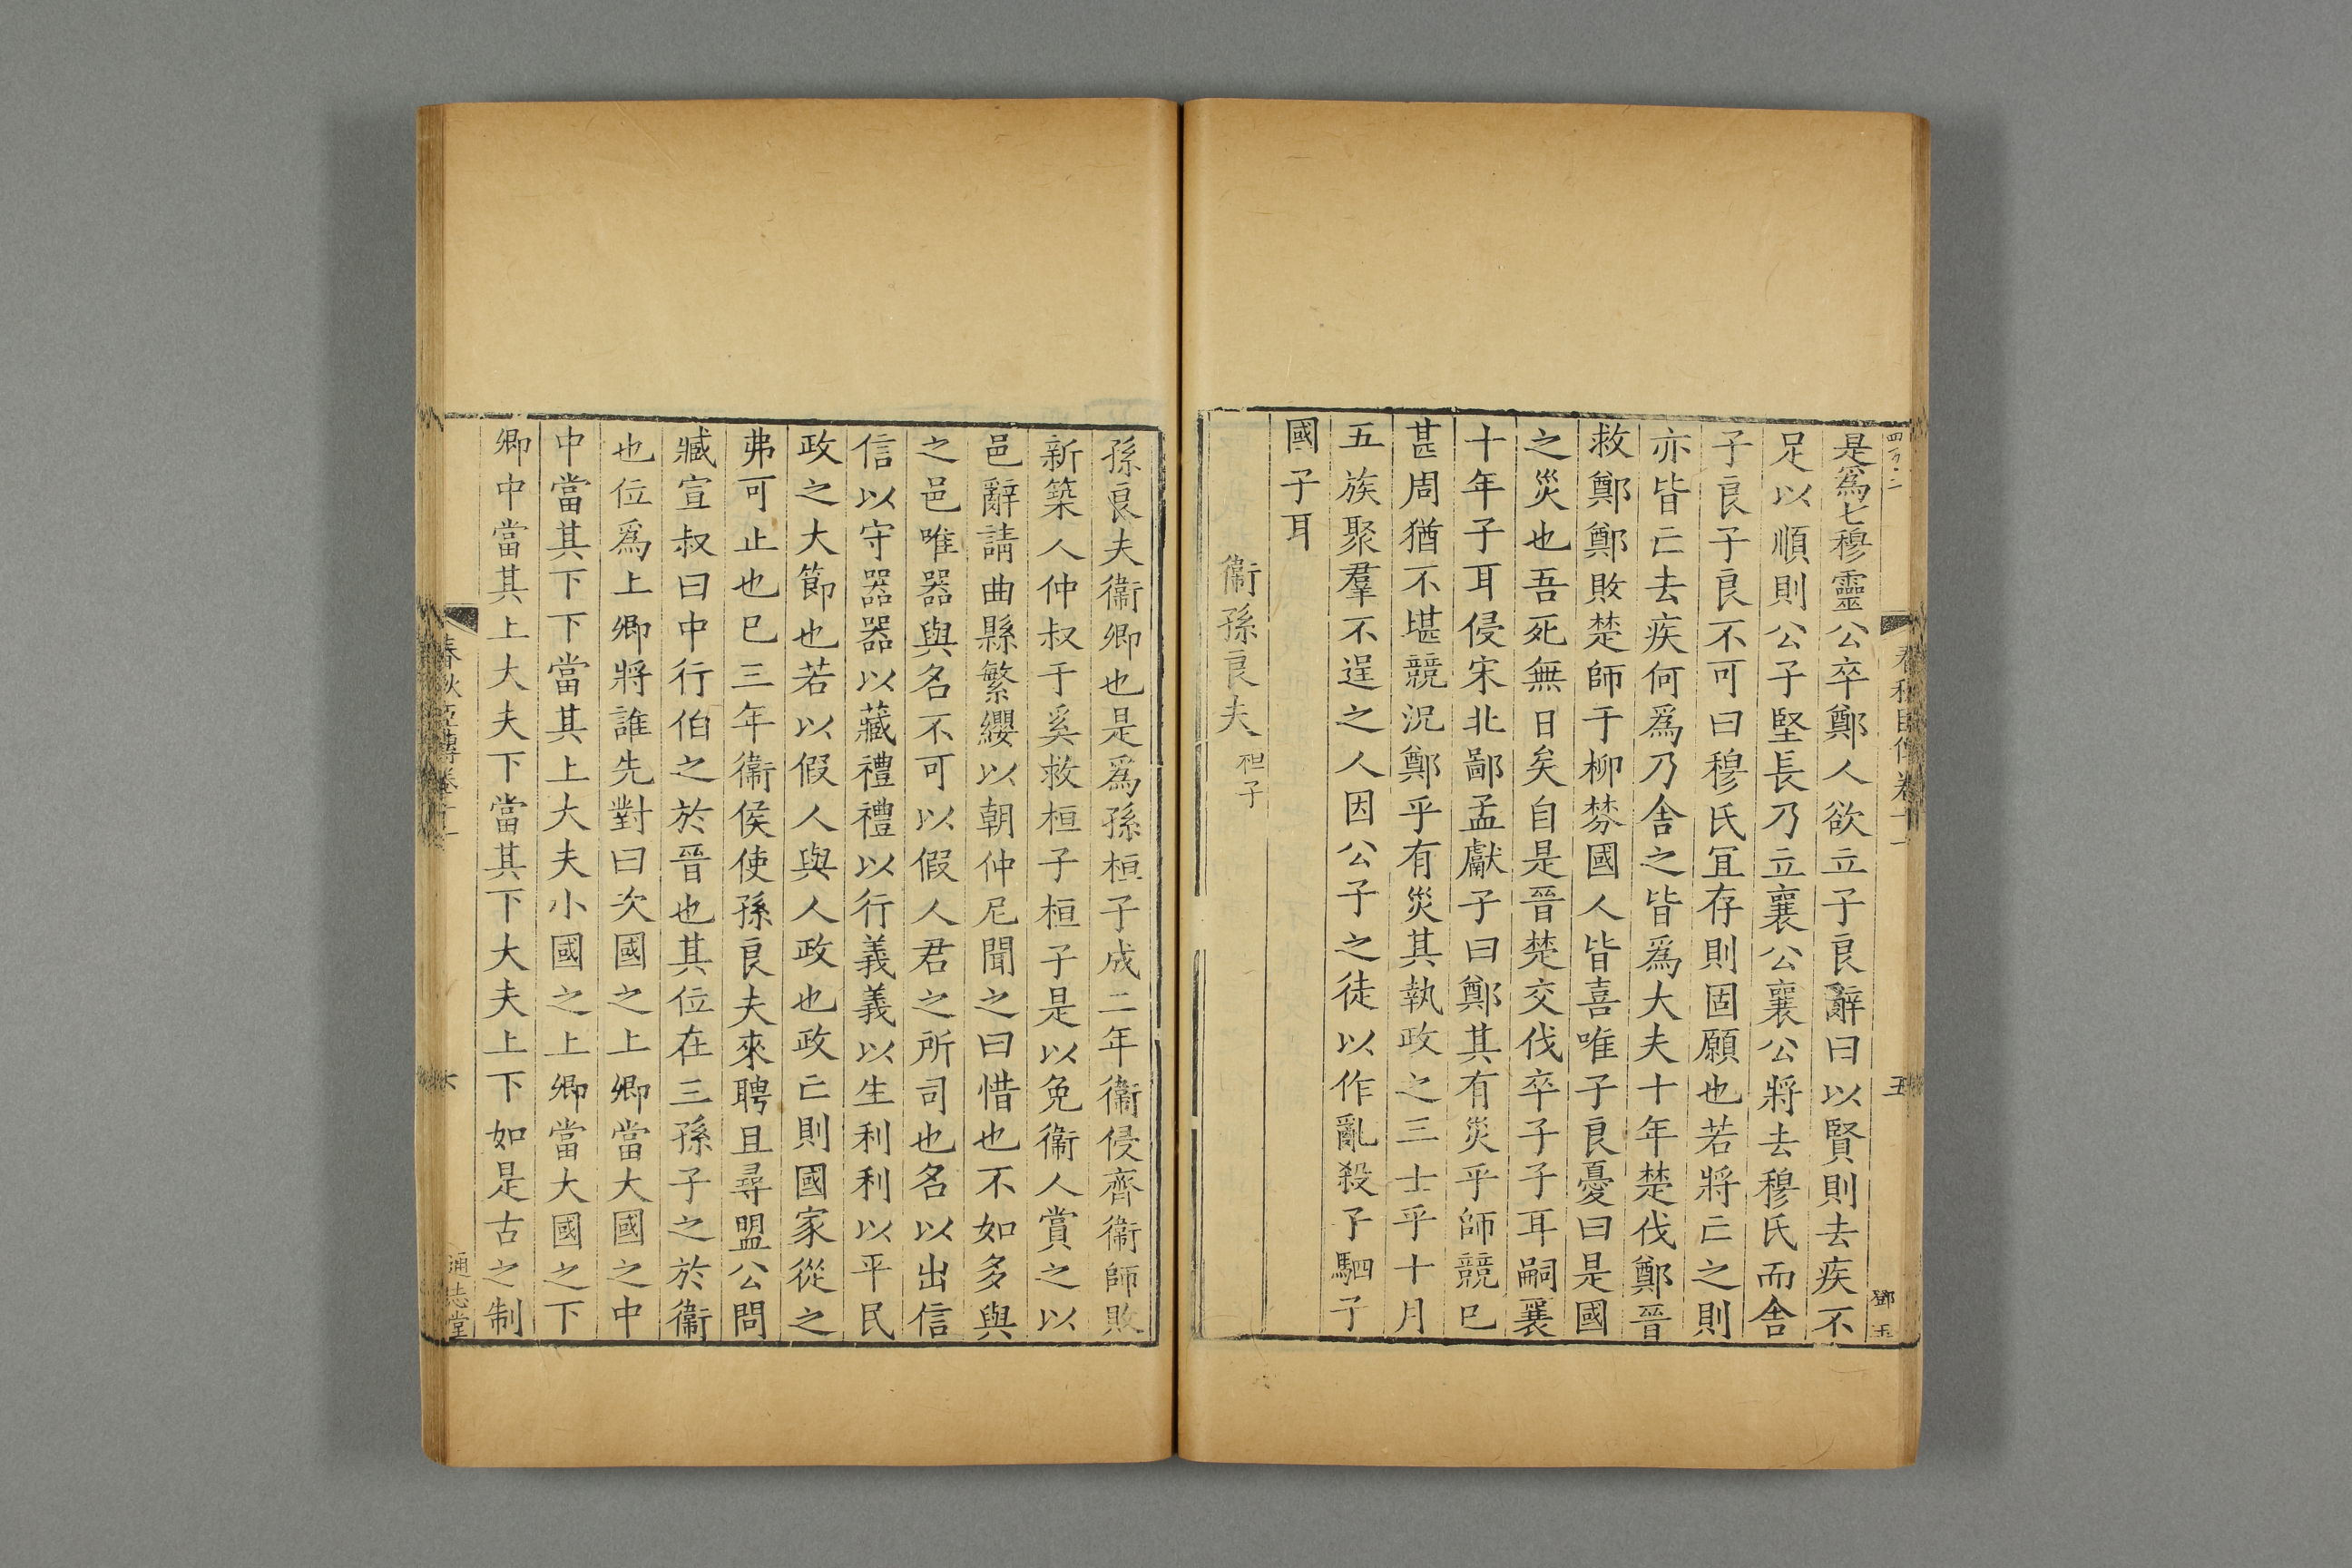 四百二
春秋臣傳卷十一
五
鄧玉
是爲七穆靈公卒鄭人欲立子良辭曰以賢則去疾不
足以順則公子堅長乃立襄公襄公將去穆氏而舍
子良子良不可曰穆氏宜存則固願也若將亡之則
亦皆亡去疾何爲乃舍之皆爲大夫十年楚伐鄭晉
救鄭鄭敗楚師于柳棼國人皆喜唯子良憂曰是國
之災也吾死無日矣自是晉楚交伐卒子子耳嗣襄
十年子耳侵宋北鄙孟獻子曰鄭其有災乎師競已
甚周猶不堪競況鄭乎有災其執政之三士乎十月
五族聚羣不逞之人因公子之徒以作亂殺子駟子
國子耳
衞孫良夫 桓子
孫良夫衞卿也是爲孫桓子成二年衞侵齊衞師敗
新築人仲叔于奚救桓子桓子是以免衞人賞之以
邑辭請曲縣繁纓以朝仲尼聞之曰惜也不如多與
之邑唯器與名不可以假人君之所司也名以出信
信以守器器以藏禮禮以行義義以生利利以平民
政之大節也若以假人與人政也政亡則國家從之
弗可止也已三年衞侯使孫良夫來聘且尋盟公問
臧宣叔曰中行伯之於晉也其位在三孫子之於衞
也位爲上卿將誰先對曰次國之上卿當大國之中
中當其下下當其上大夫小國之上卿當大國之下
卿中當其上大夫下當其下大夫上下如是古之制
春秋臣傳卷十一
六
通志堂